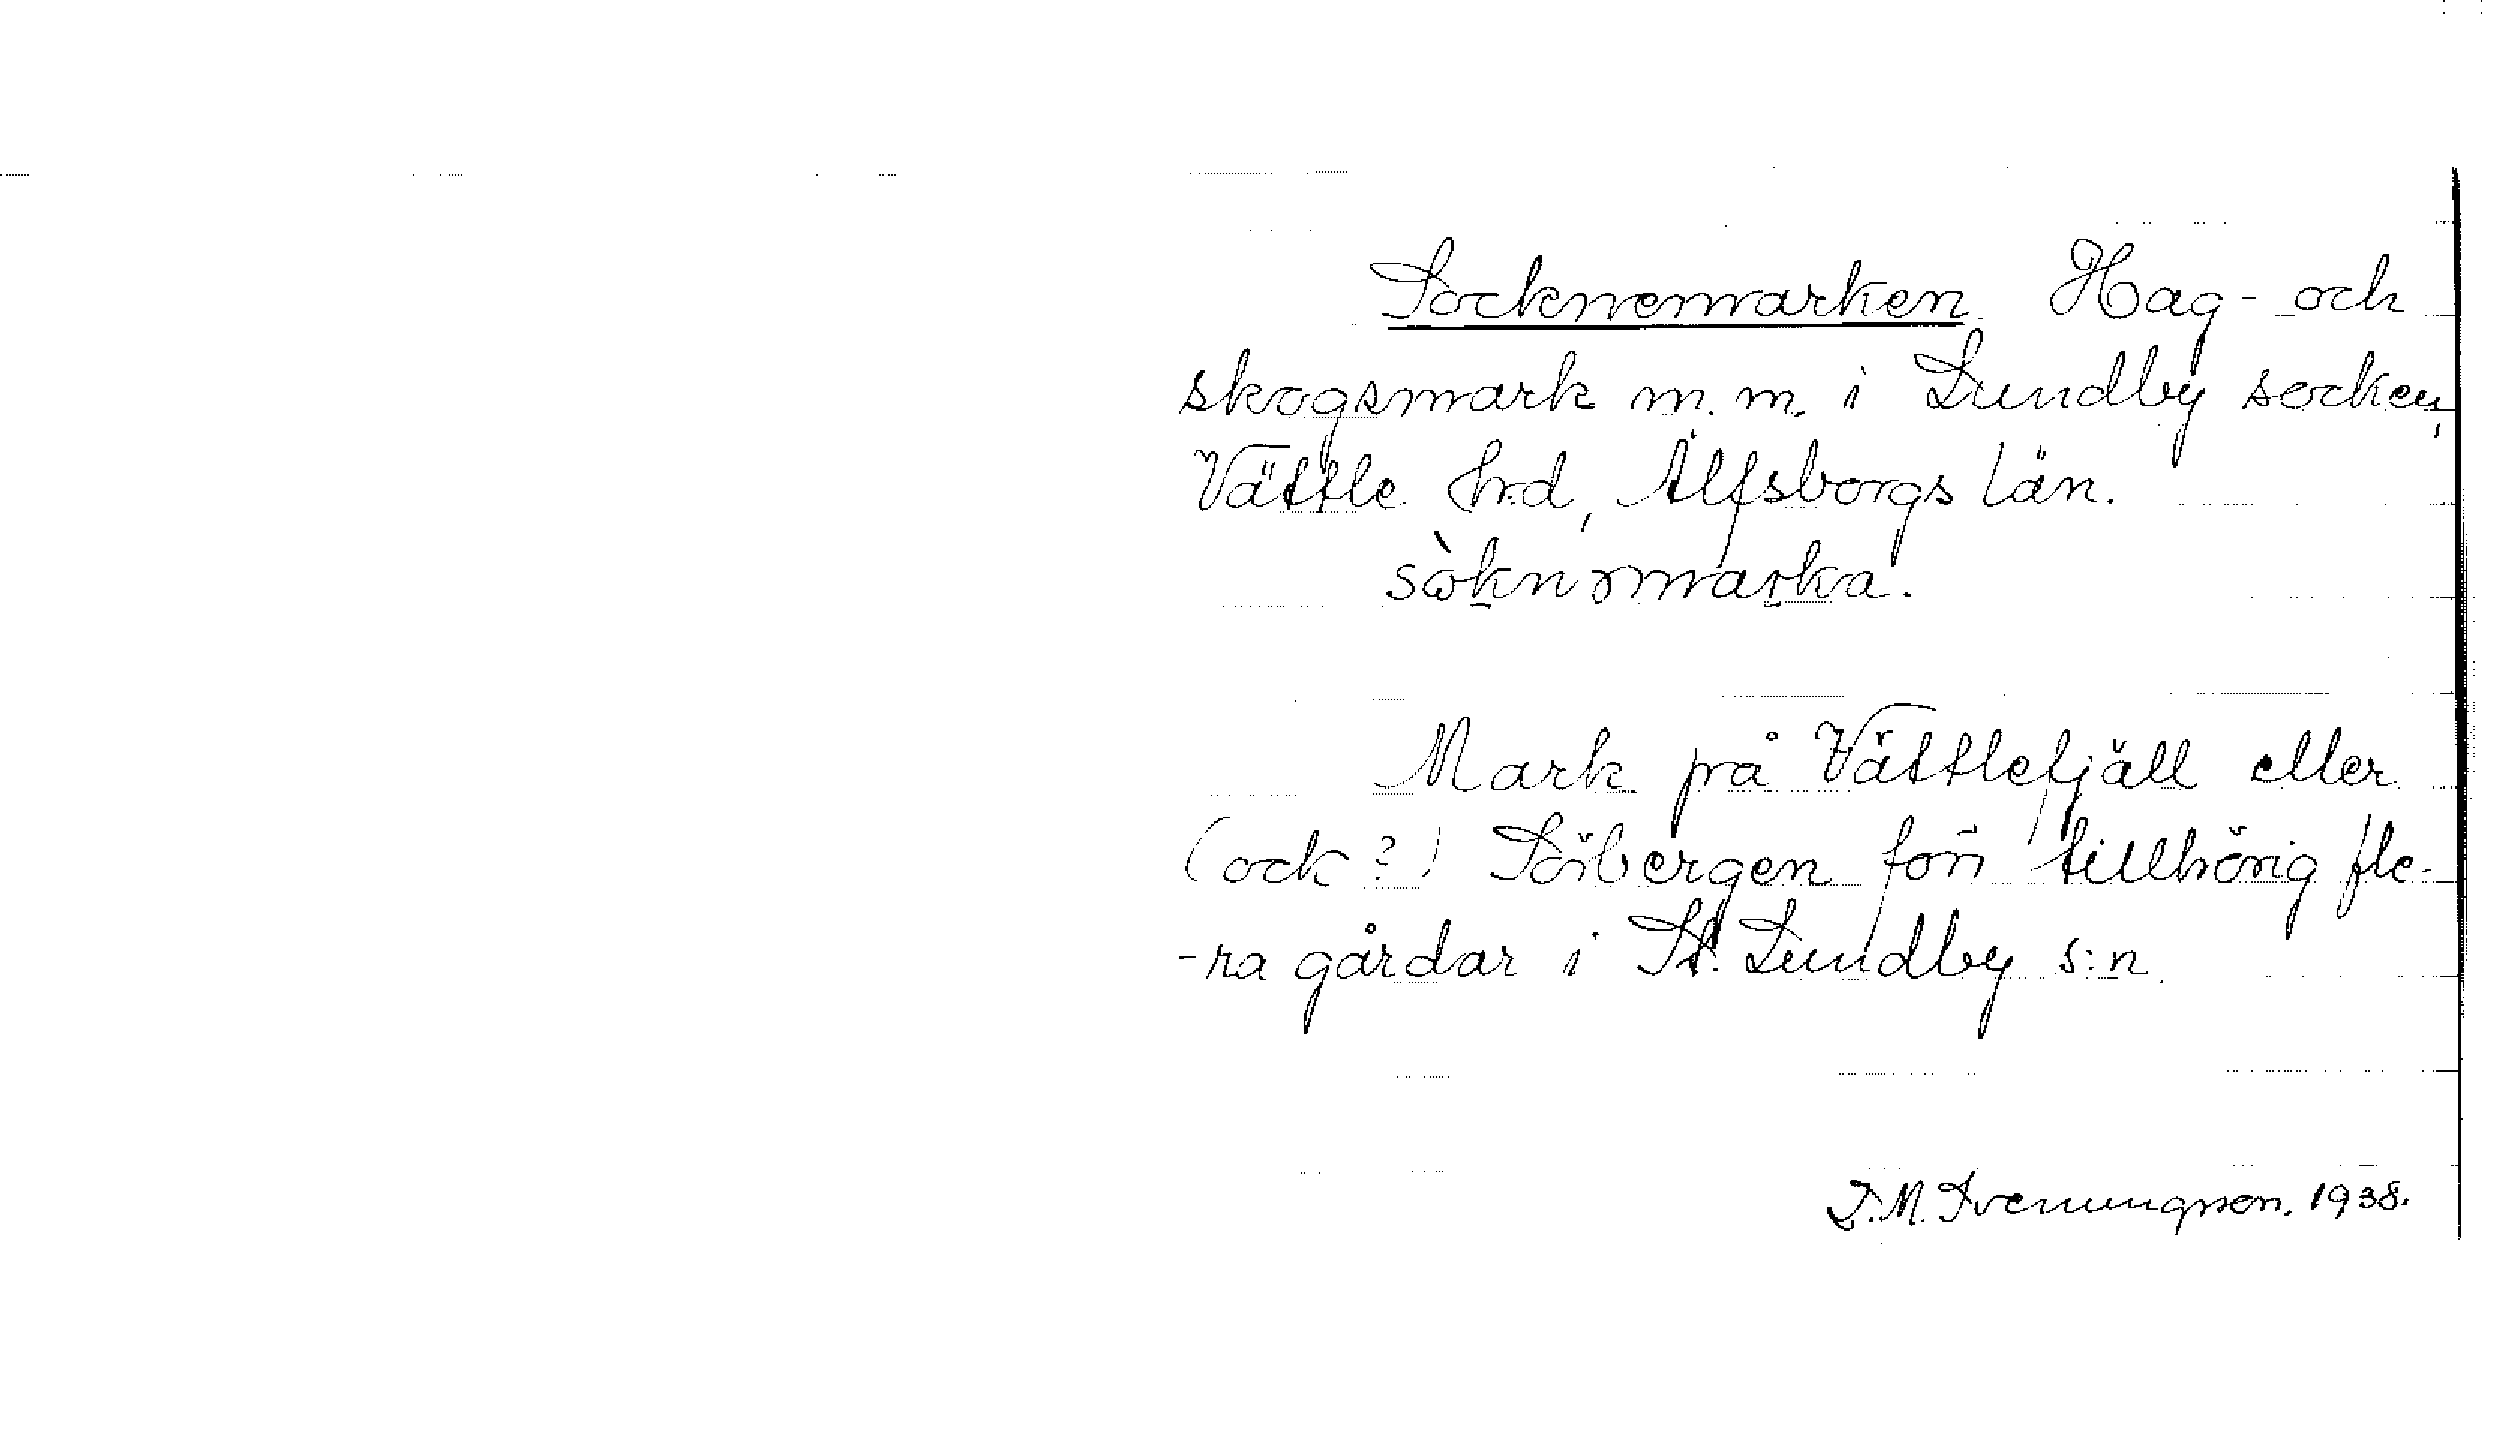 Socknemarken Hag- och
skogsmark m.m. i Lundby socken,
Vättle hd, Älfsborgs län.
sò̤knəmarka.
Mark på Vättlefjäll eller
(ock?) Söbergen förr tillhörig fle-
-ra gårdar i St. Lundby s:n.
D.M. Svenungsson. 1938.